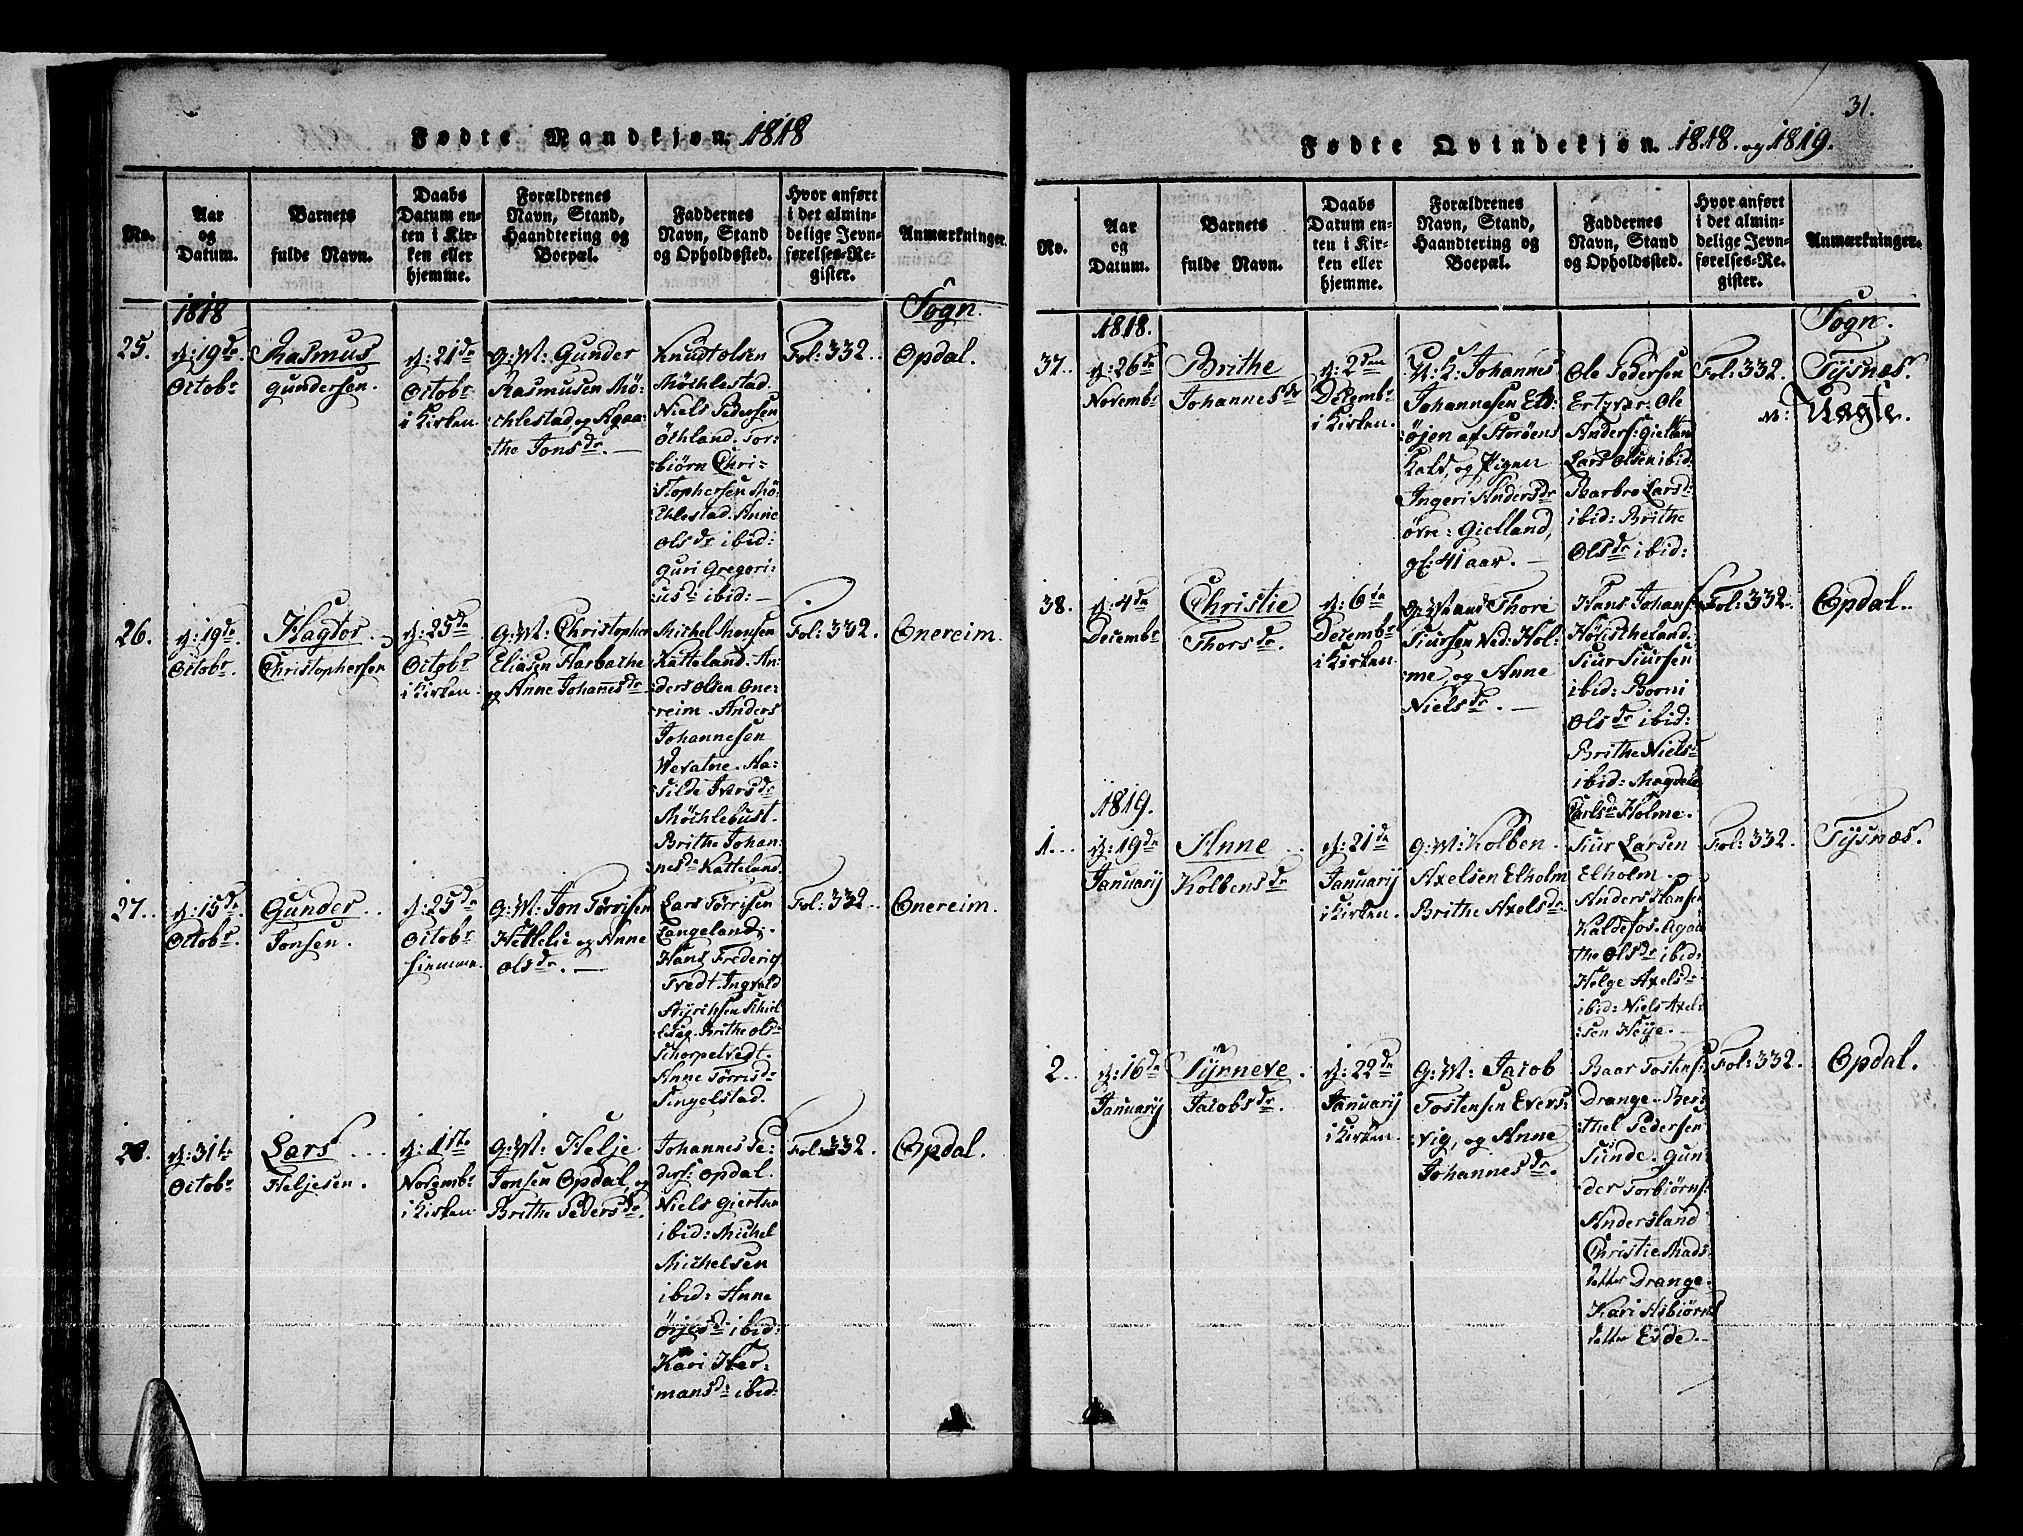 Fødte Mandkjøn. 1818
No.
Aar
og
Datum.
Barnets
fulde Navn.
Daabs
Datum en-
ten i Kir-
ken eller
hjemme.
Forældrenes
Navn, Stand,
Haandtering og
Boepæl.
Faddernes
Navn, Stand
og Opholdssted.
Hvor anført
i det almin-
delige Jevn-
førelses-Re-
gister.
Anmærkninger.
1818
Sogn.
25.
d: 19de
Octobr.
Rasmus
Gundersen.
d: 21de
Octobr
i Kirken
G: M: Gunder
Rasmusen Mø-
:chlestad, og Agaa-
:the Jonsdr. —
Knudt Olsen
Møchlestad.
Niels Pedersen
Øchland. Tor-
:biørn Chri-
:stophersen Mø-
:chlestad. Anne
Olsdr ibid:
Guri Gregori-
:usd: ibid: —
Fol: 332.
Opdal.
26.
d: 19de
Octobr.
Hagtor
Christophersen
d: 25de
Octobr
i Kirken.
G: M: Christopher
Eliasen Harbache
og Anne Johannesdr
Michel Monsen
Katteland. An-
:ders Olsen One-
:reim. Anders
Johannesen
Wevatne. Aa-
:silde Iversdr
Møchlebust.
Brithe Johan-
:nesdr Katteland.
Fol: 332.
Onereim.
27.
d: 15de
Octobr.
Gunder
Jonsen.
d: 25de
Octobr
hiemme.
G: M: Jon Tørrisen
Hettelie og Anne
Olsdr. —
Lars Tørrisen
Langeland.
Hans Frederig
Tvedt. Ingvald
Brithe Ols-
Schorpetvedt.
Anne Tørrisdr
Singelstad.
Fol: 332.
Onereim.
28.
d: 31te
Octobr
Lars
Heljesen.
d: 1te
Novembr
i Kirken.
G: M: Helje
Jonsen Opdal, og
Brithe Pedersdr.
Johannes Pe-
:ders: Opdal.
Niels Giertsen
ibid: Michel
Michelsen
ibid: Anne
Ørjesd: ibid:
Kari Her-
:mansd: ibid:
Fol: 332.
Opdal.
31.
Fødte Qvindekjøn. 1818. og 1819.
No.
Aar
og
Datum.
Barnets
fulde Navn.
Daabs
Datum en-
ten i Kir-
ken eller
hjemme.
Forældrenes
Navn, Stand,
Haandtering og
Boepæl.
Faddernes
Navn, Stand
og Opholdssted.
Hvor anført
i det almin-
delige Jevn-
førelses-Re-
gister.
Anmærkninger.
1818.
Sogn.
37.
d: 26de
Novembr
Brithe
Johannesdr
d: 2den
Decembr
i Kirken.
U: K: Johannes
Johannesen Eld-
:øjen af Storøens
Kald, og Pigen
Ingeri Andersdr
øvre: Gielland,
gl: 41 aar. —
Ole Pedersen
Ertzvær: Ole
Anders: Gielland
Lars Olsen ibid:
Barbro Larsd:
ibid: Brithe
Olsdr ibid:
Fol: 332.
Tysnæs.
N: Uægte.
38.
d: 4de
Decembr
Christie
Thorsdr.
d: 6te
Decembr
i Kirken.
G: Mand Thore
Siursen Ned: Hol-
:me, og Anne
Nielsdr. —
Hans Johans:
Høistheland.
Siur Siursen
ibid: Borni
Olsdr ibid:
Brithe Nielsd
ibid: Magdele
Carlsdr Holme.
Fol: 332.
Opdal.
1819.
1.
d: 19de
Januarij
Anne
Kolbensdr
d: 21de
Januarij
i Kirken.
G: M: Kolben
Axelsen Elholm
Brithe Axelsdr.
Siur Larsen
Elholm. og
Anders Hansen
Kaldefos. Agaa
:the Olsdr ibid:
Helge Axelsdr
ibid: Niels Axel-
:sen Heije.
Fol: 332.
Tysnæs.
2.
d: 16de
Januarij
Synneve
Jacobsdr.
d: 22de
Januarij
i Kirken.
G: M: Jacob
Tostensen Evers-
:vig, og Anne
Johannesdr.
Baar Tostens:
Drange. Ber-
:thel Pedersen
Sunde. Gun
:der Torbiørns:
Andersland
Christie Mads-
datter Drange.
Kari Asbiørns
datter Eide.
Fol: 332.
Opdal.